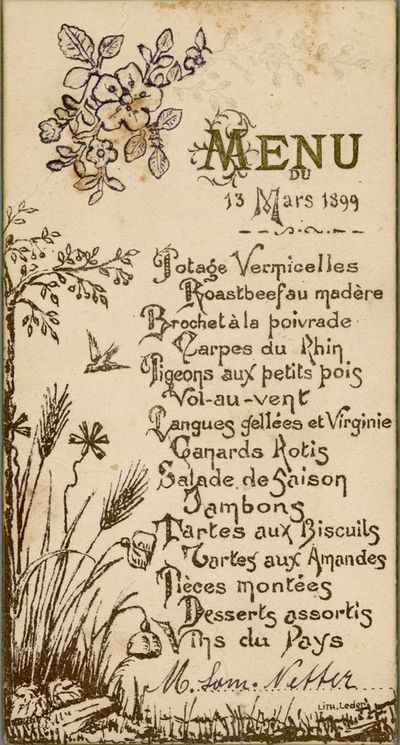 MENU
DU
13 Mars 1899
Potage Vermicelles
Roastbeef au madère
Brochet à la poivrade
Carpes du Rhin
Pigeons aux petits pois
Vol-au-vent
Langues gellées et Virginie
Canards Rotis
Salade de Saison
Jambons
Tartes aux Biscuits
Tartes aux Amandes
Pièces montées
Desserts assortis
Vins du Pays
M. Sam. Netter
Lith. Leder